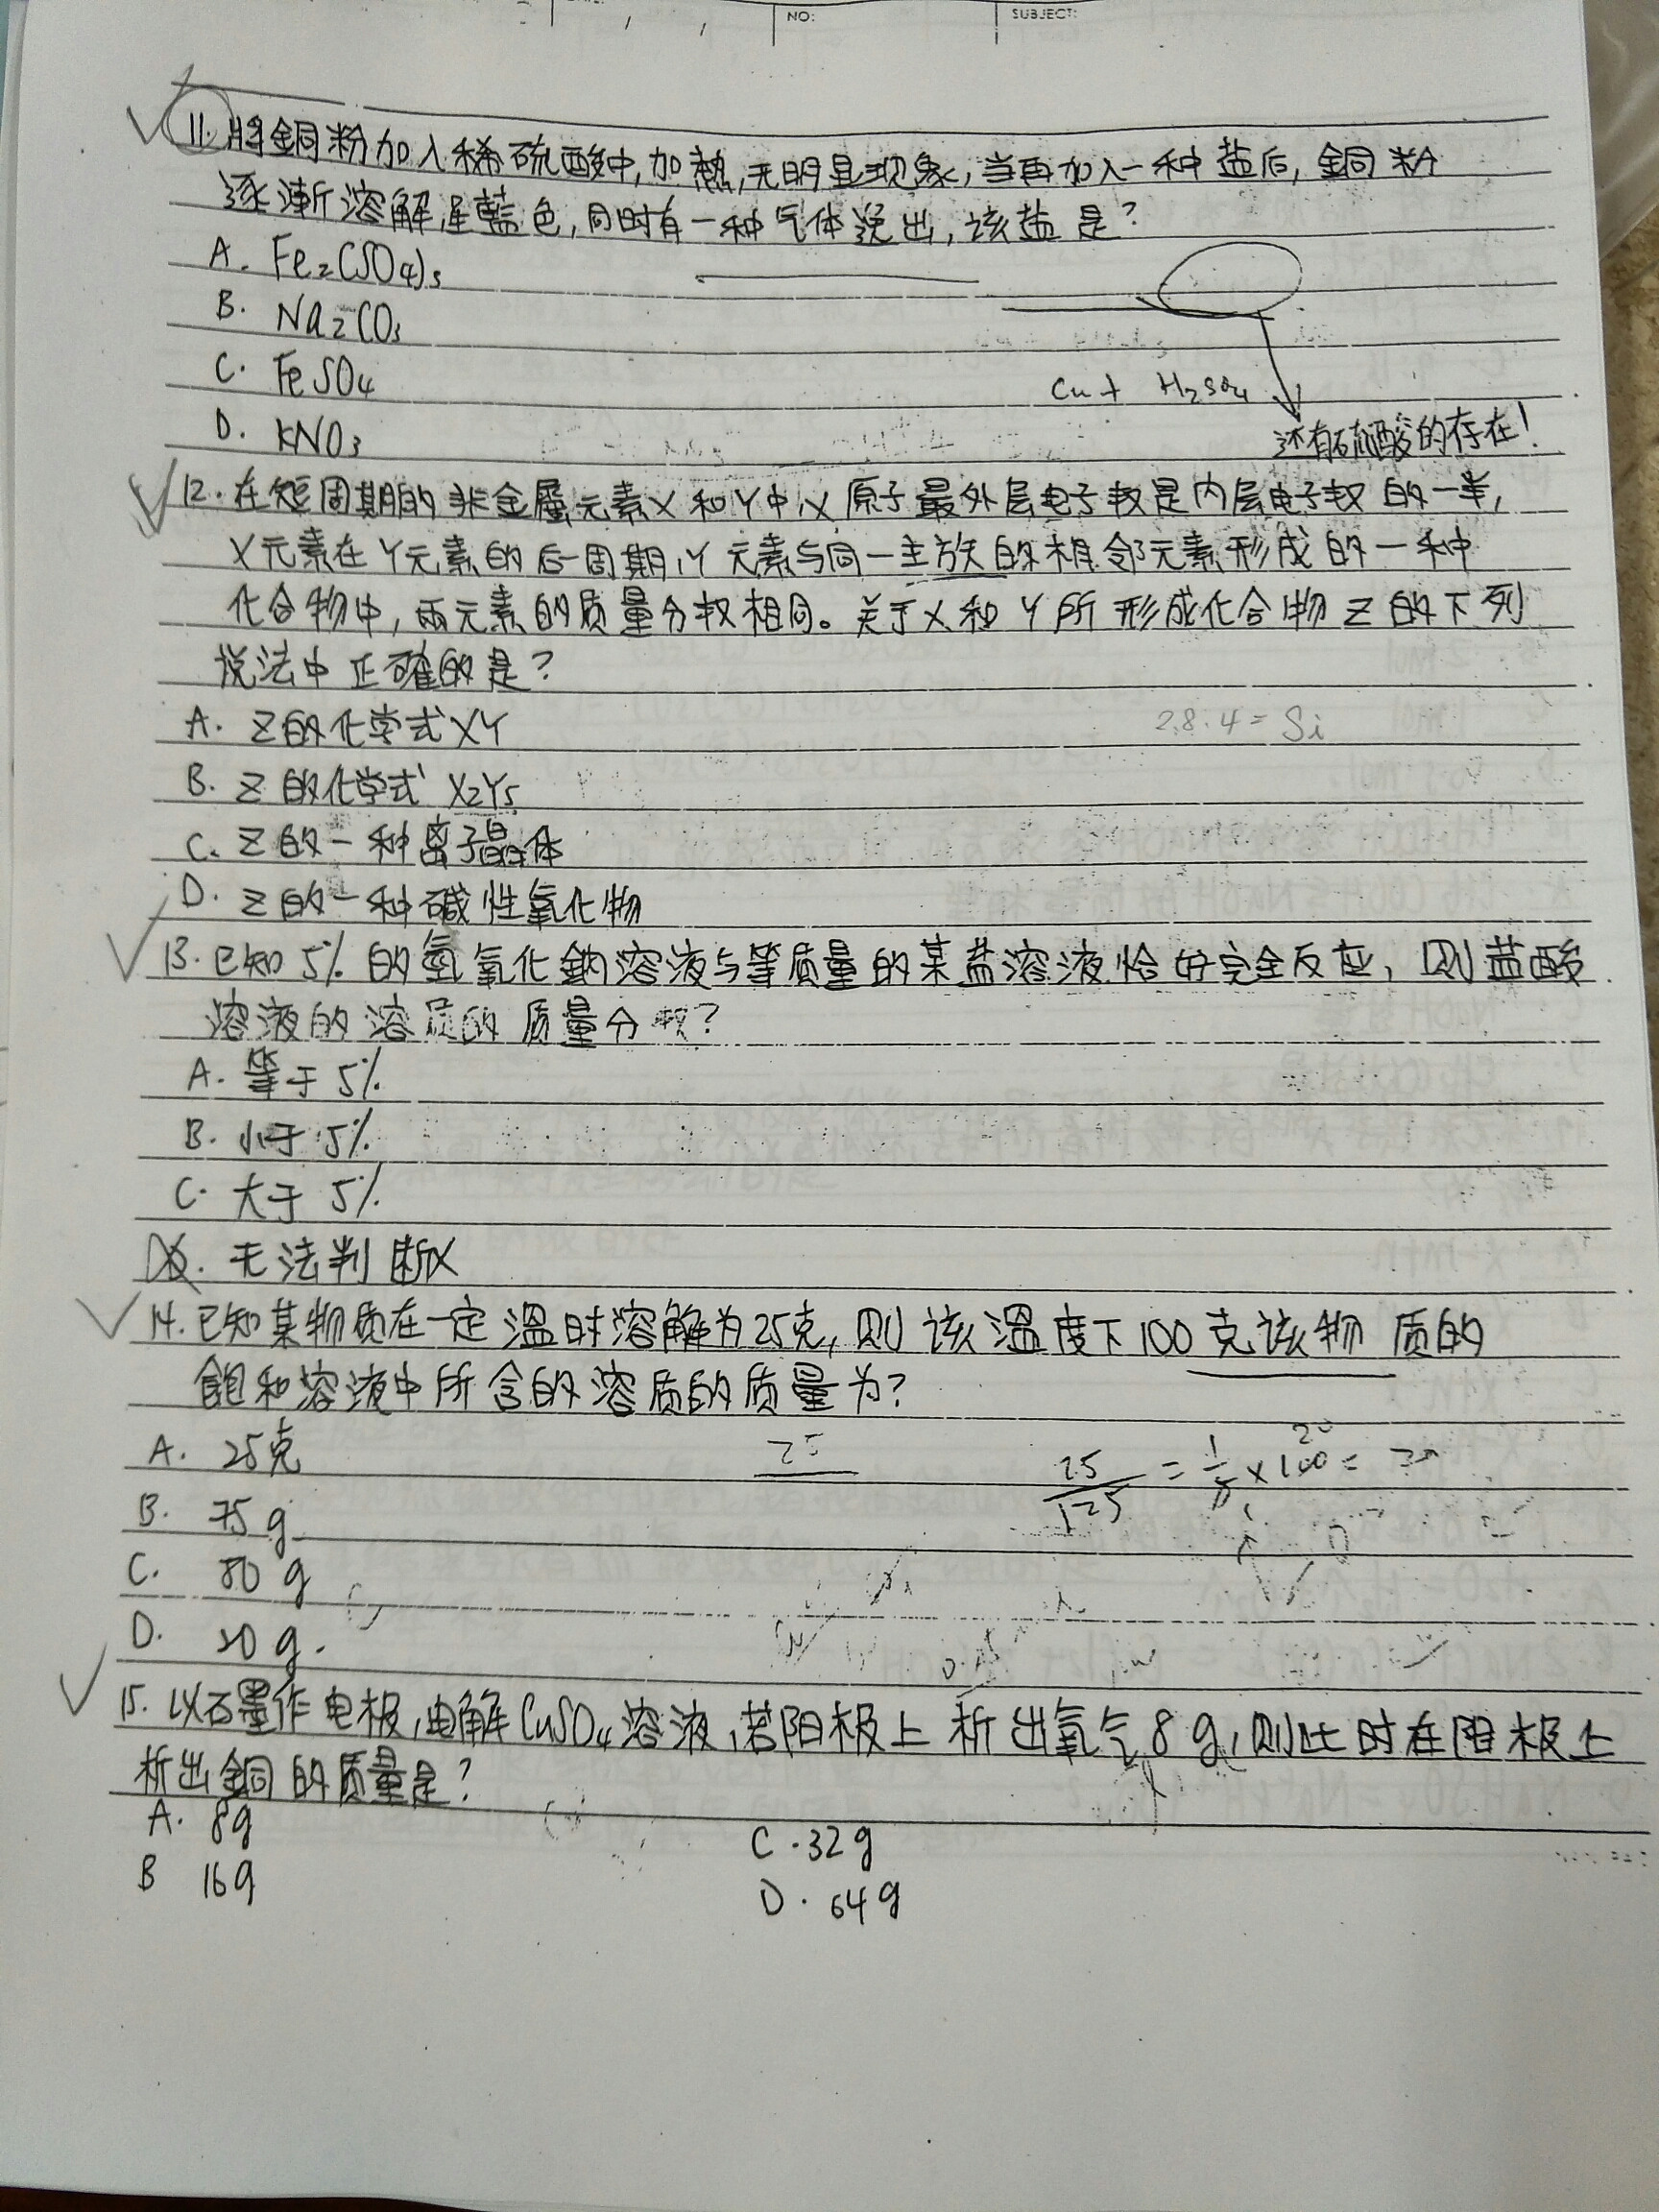 NO:
SUBJECT:
11. 将銅粉加入稀硫酸中,加熱,无明显现象,当再加入一种盐后,銅粉
逐漸溶解,呈藍色,同时有一种气体逸出,该盐是?
A. Fe₂(SO₄)₃
B. Na₂CO₃
C. FeSO₄
Cu + H₂SO₄
D. KNO₃
还有硫酸的存在!
12. 在短周期的非金屬元素X和Y中,X原子最外层电子数是内层电子数的一半,
X元素在Y元素的后一周期,Y元素与同一主族的相邻元素形成的一种
化合物中,兩元素的质量分数相同。关于X和Y所形成化合物Z的下列
说法中正確的是?
A. Z的化学式XY
2.8.4 = Si
B. Z的化学式X₂Y₅
C. Z的一种离子晶体
D. Z的一种碱性氧化物
13. 已知5%的氢氧化鈉溶液与等质量的某盐溶液恰好完全反应,则盐酸
溶液的溶质的质量分数?
A. 等于5%
B. 小于5%
C. 大于5%
D. 无法判断
14. 已知某物质在一定溫时溶解为25克,则该溫度下100克该物质的
飽和溶液中所含的溶质的质量为?
A. 25克
25/125 = 1/5 × 100 = 20
B. 75g
C. 80g
D. 20g.
15. 以石墨作电极,电解CuSO₄溶液,若阳极上析出氧气8g,则此时在阴极上
析出銅的质量是?
A. 8g
C. 32g
B 16g
D. 64g